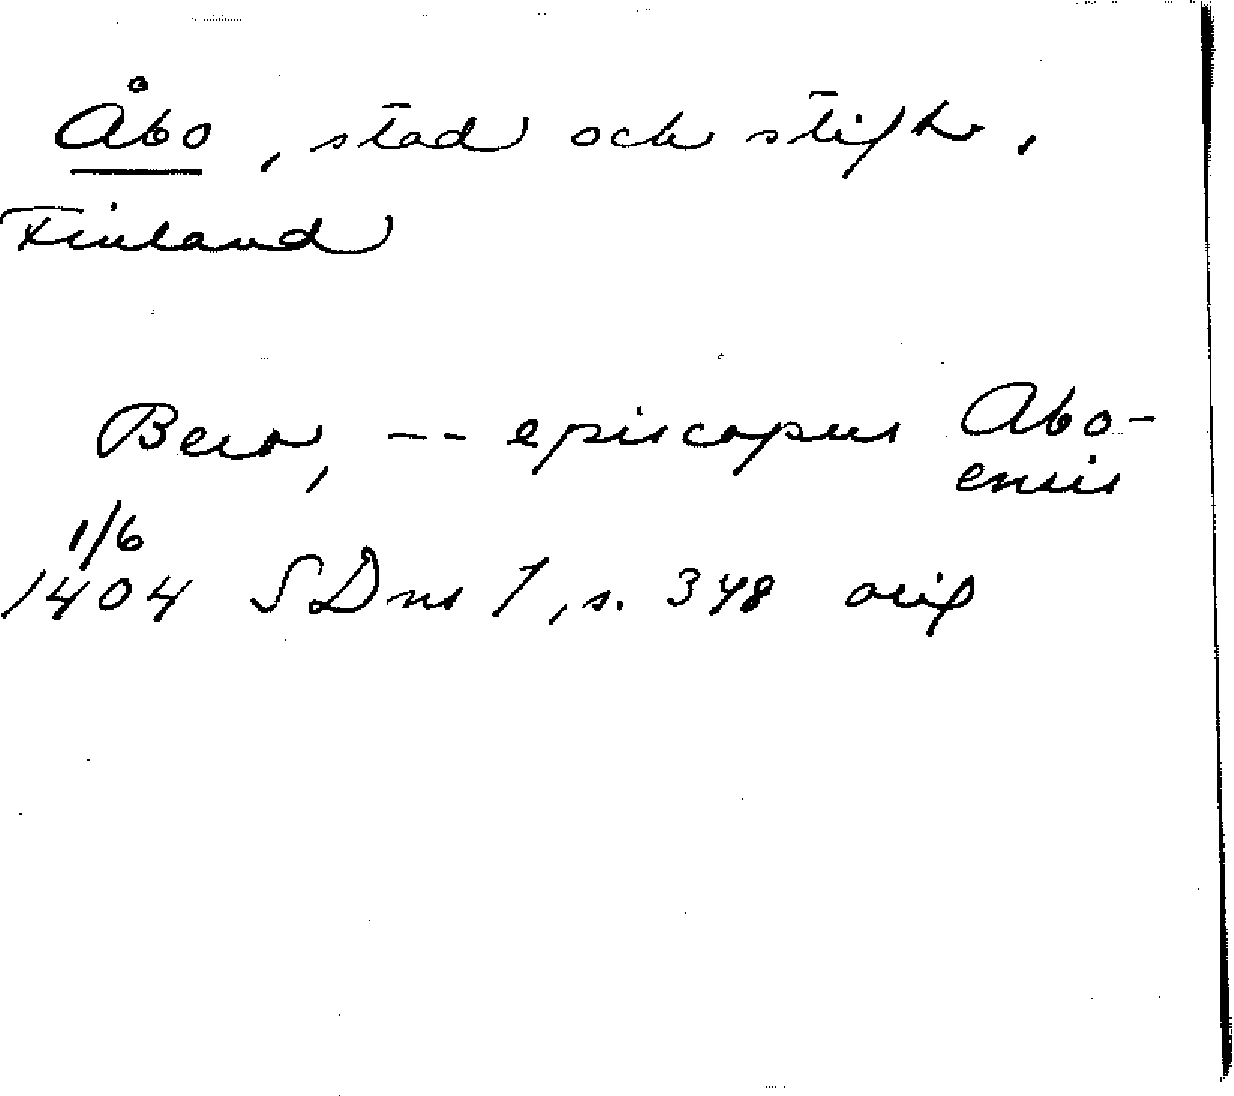 Åbo, stad och stift,
Finland
Bero, -- episcopus Abo-
ensis
1/6
1404 SDns 1, s. 348 orig